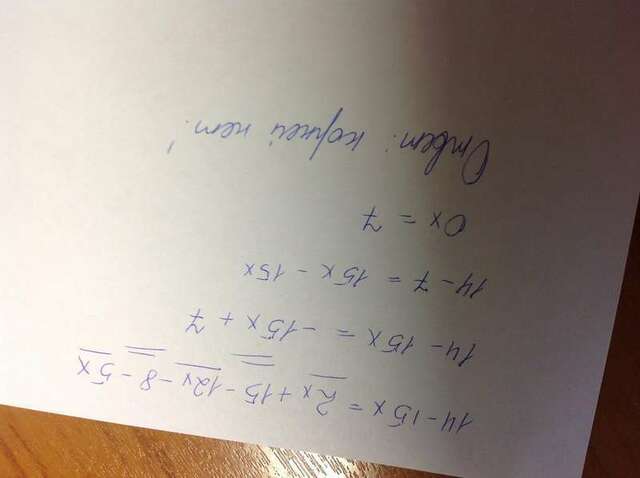 14 - 15x = 2x + 15 - 12x - 8 - 5x
14 - 15x = -15x + 7
14 - 7 = 15x - 15x
0x = 7
Ответ: корней нет!